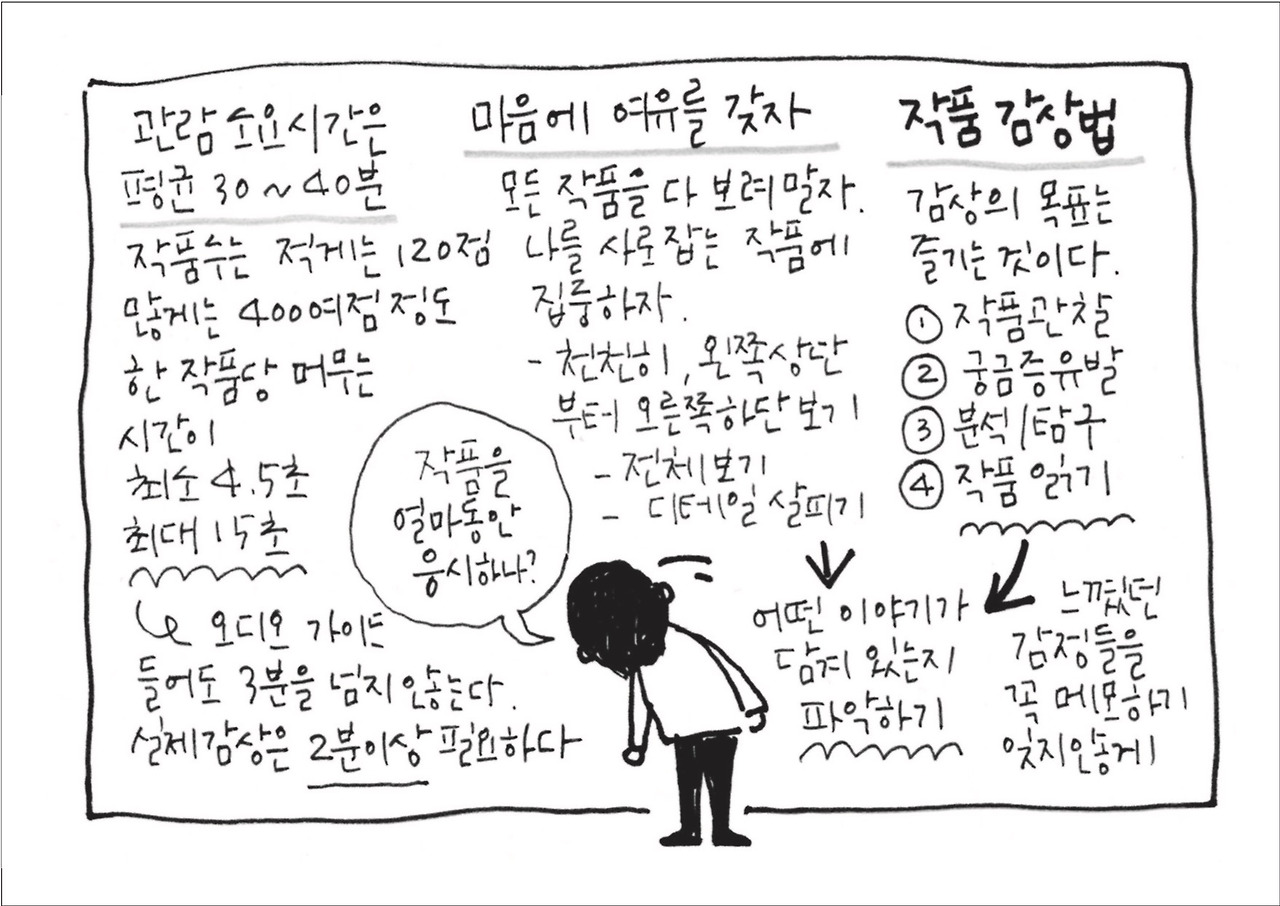 관람 소요시간은
평균 30~40분
작품수는 적게는 120점
많게는 400여점 정도
한 작품당 머무는
시간이
최소 4.5초
최대 15초
오디오 가이드
들어도 3분을 넘지 않는다.
실제감상은 2분이상 필요하다
작품을
얼마동안
응시하나?
마음에 여유를 갖자
모든 작품을 다 보려 말자.
나를 사로잡는 작품에
집중하자.
- 천천히, 왼쪽상단
부터 오른쪽하단 보기
- 전체보기
- 디테일 살피기
어떤 이야기가
담겨 있는지
파악하기
작품 감상법
감상의 목표는
즐기는 것이다.
① 작품관찰
② 궁금증유발
③ 분석/탐구
④ 작품 읽기
느꼈던
감정들을
꼭 메모하기
잊지않게